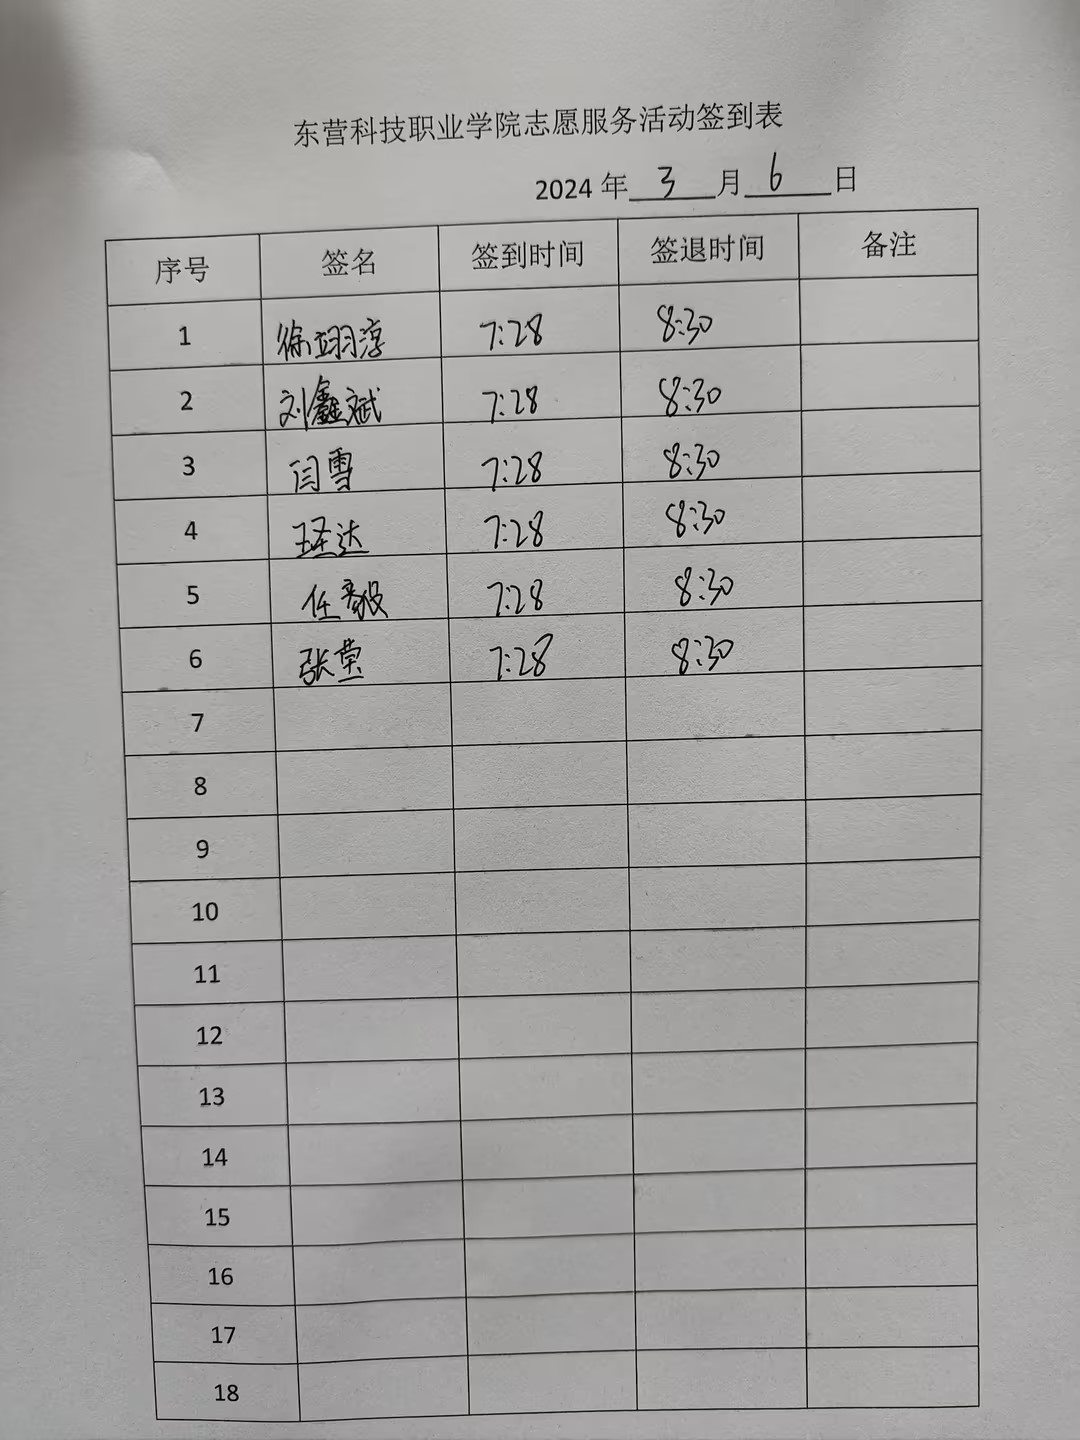 东营科技职业学院志愿服务活动签到表
2024 年 3 月 6 日
序号 签名 签到时间 签退时间 备注
1 徐翊淳 7:28 8:30
2 刘鑫斌 7:28 8:30
3 闫雪 7:28 8:30
4 王圣达 7:28 8:30
5 任毅 7:28 8:30
6 张 7:28 8:30
7
8
9
10
11
12
13
14
15
16
17
18